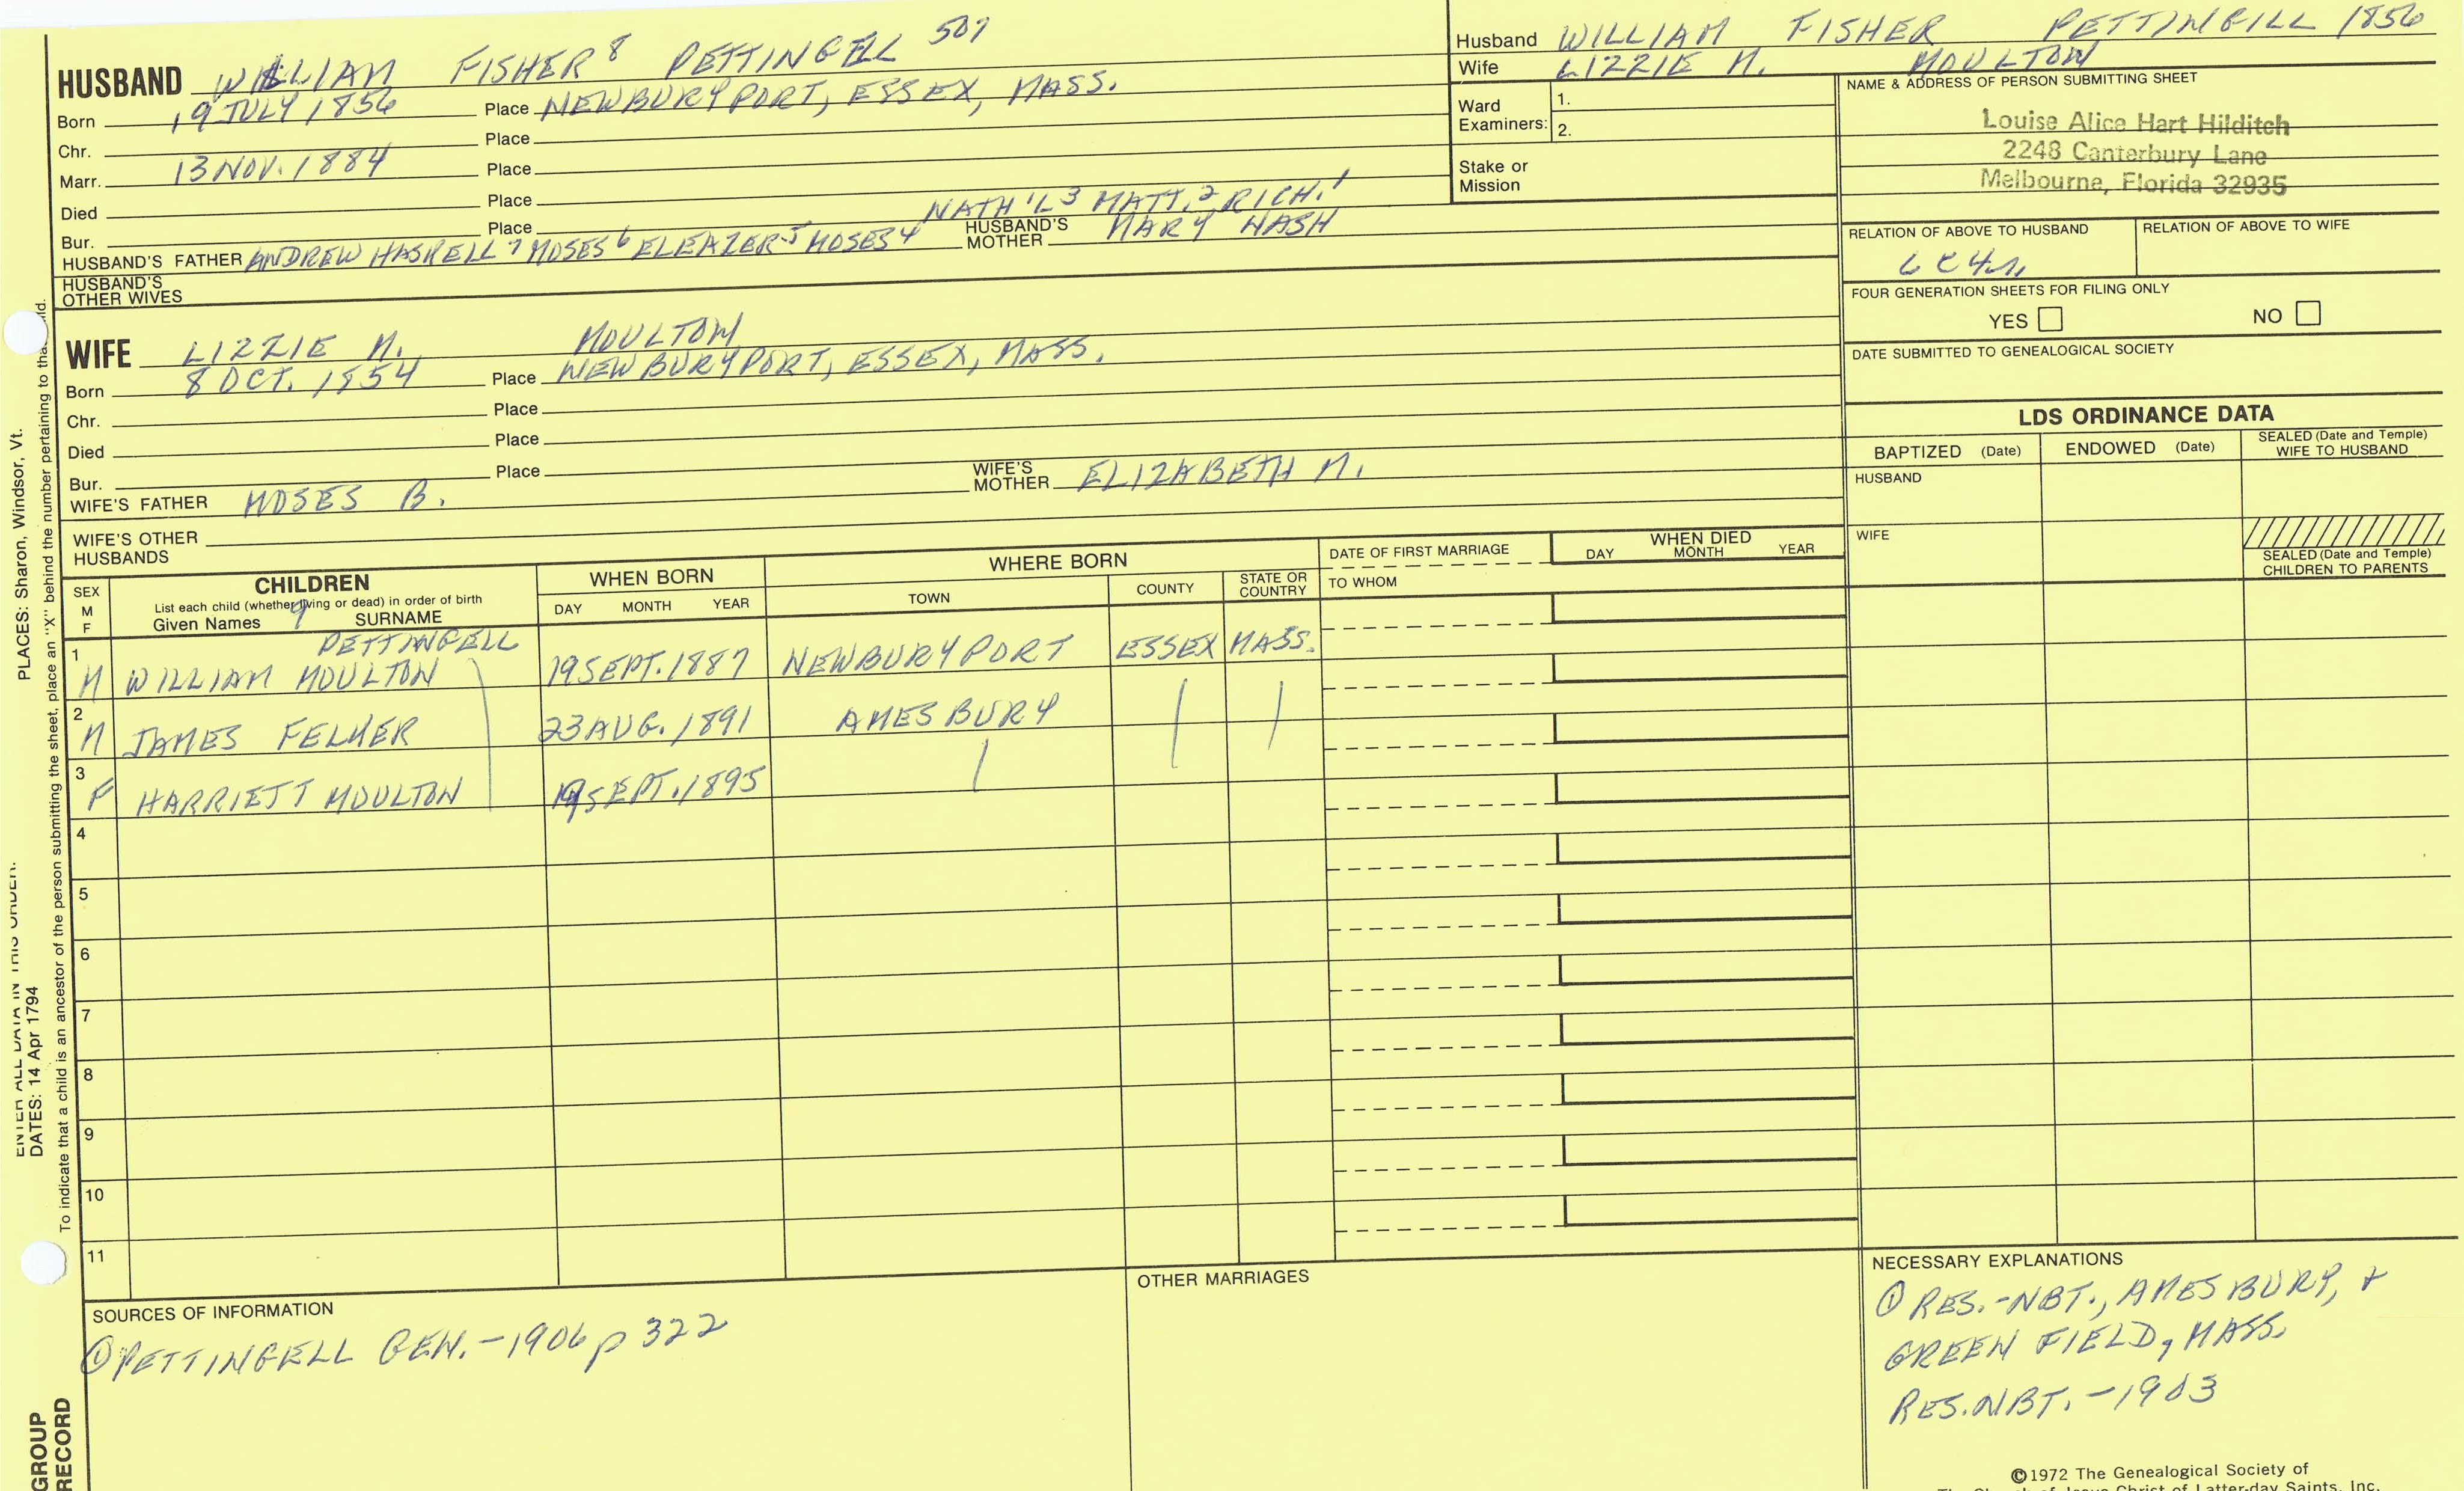 HUSBAND WILLIAM FISHER 8 PETTINGELL 507
Born 19 JULY 1856 Place NEWBURYPORT, ESSEX, MASS.
Chr. Place
Marr. 13 NOV. 1884 Place
Died Place
Bur. Place
NATH'L 3 MATT. 2 RICH. 1
HUSBAND'S FATHER ANDREW HASKELL 7 MOSES 6 ELEAZER 5 MOSES 4 HUSBAND'S MOTHER MARY NASH
HUSBAND'S OTHER WIVES
WIFE LIZZIE M. MOULTON
Born 8 OCT. 1854 Place NEWBURYPORT, ESSEX, MASS.
Chr. Place
Died Place
Bur. Place
WIFE'S FATHER MOSES B. WIFE'S MOTHER ELIZABETH M.
WIFE'S OTHER HUSBANDS
Husband WILLIAM FISHER PETTINGELL 1856
Wife LIZZIE M. MOULTON
Ward Examiners: 1.
2.
Stake or Mission
NAME & ADDRESS OF PERSON SUBMITTING SHEET
Louise Alice Hart Hilditch
2248 Canterbury Lane
Melbourne, Florida 32935
RELATION OF ABOVE TO HUSBAND RELATION OF ABOVE TO WIFE
6C4R
FOUR GENERATION SHEETS FOR FILING ONLY
YES NO
DATE SUBMITTED TO GENEALOGICAL SOCIETY
LDS ORDINANCE DATA
BAPTIZED (Date) ENDOWED (Date) SEALED (Date and Temple) WIFE TO HUSBAND
HUSBAND
WIFE
SEALED (Date and Temple) CHILDREN TO PARENTS
SEX M F
CHILDREN
List each child (whether living or dead) in order of birth
Given Names 9 SURNAME
WHEN BORN
DAY MONTH YEAR
WHERE BORN
TOWN COUNTY STATE OR COUNTRY
DATE OF FIRST MARRIAGE
TO WHOM
WHEN DIED
DAY MONTH YEAR
PETTINGELL
1 M WILLIAM MOULTON 19 SEPT. 1887 NEWBURYPORT ESSEX MASS.
2 M JAMES FELMER 23 AUG. 1891 AMESBURY
3 F HARRIETT MOULTON 19 SEPT. 1895
4
5
6
7
8
9
10
11
SOURCES OF INFORMATION
① PETTINGELL GEN. - 1906 p 322
OTHER MARRIAGES
NECESSARY EXPLANATIONS
① RES. - NBT., AMESBURY, +
GREEN FIELD, MASS.
RES. NBT. - 1903
©1972 The Genealogical Society of
The Church of Jesus Christ of Latter-day Saints, Inc.
PLACES: Sharon, Windsor, Vt.
ENTER ALL DATA IN THIS ORDER:
DATES: 14 Apr 1794
To indicate that a child is an ancestor of the person submitting the sheet, place an "X" behind the number pertaining to that
GROUP
RECORD